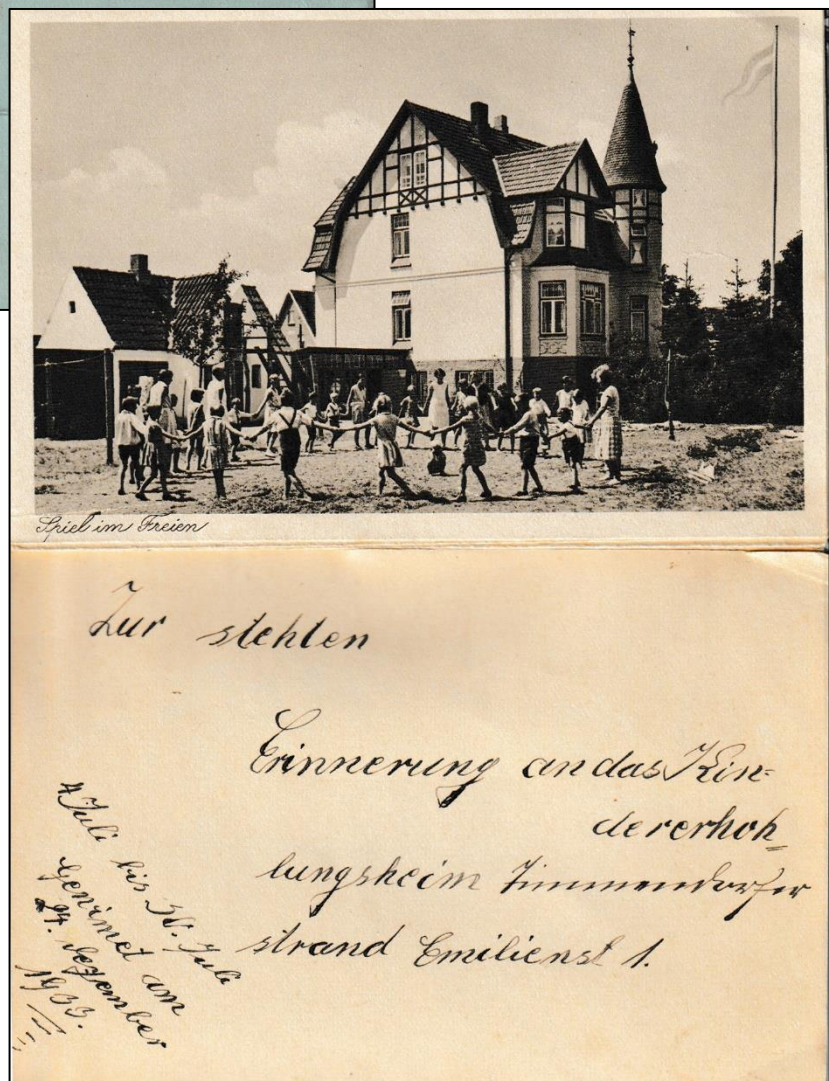 Spiel im Freien
Zur stehten
Erinnerung an das Kin=
dererhoh=
lungsheim Timmendorfer
strand Emilienst 1.
4 Juli bis 30. Juli
Genimet am
24. dezember
1933.